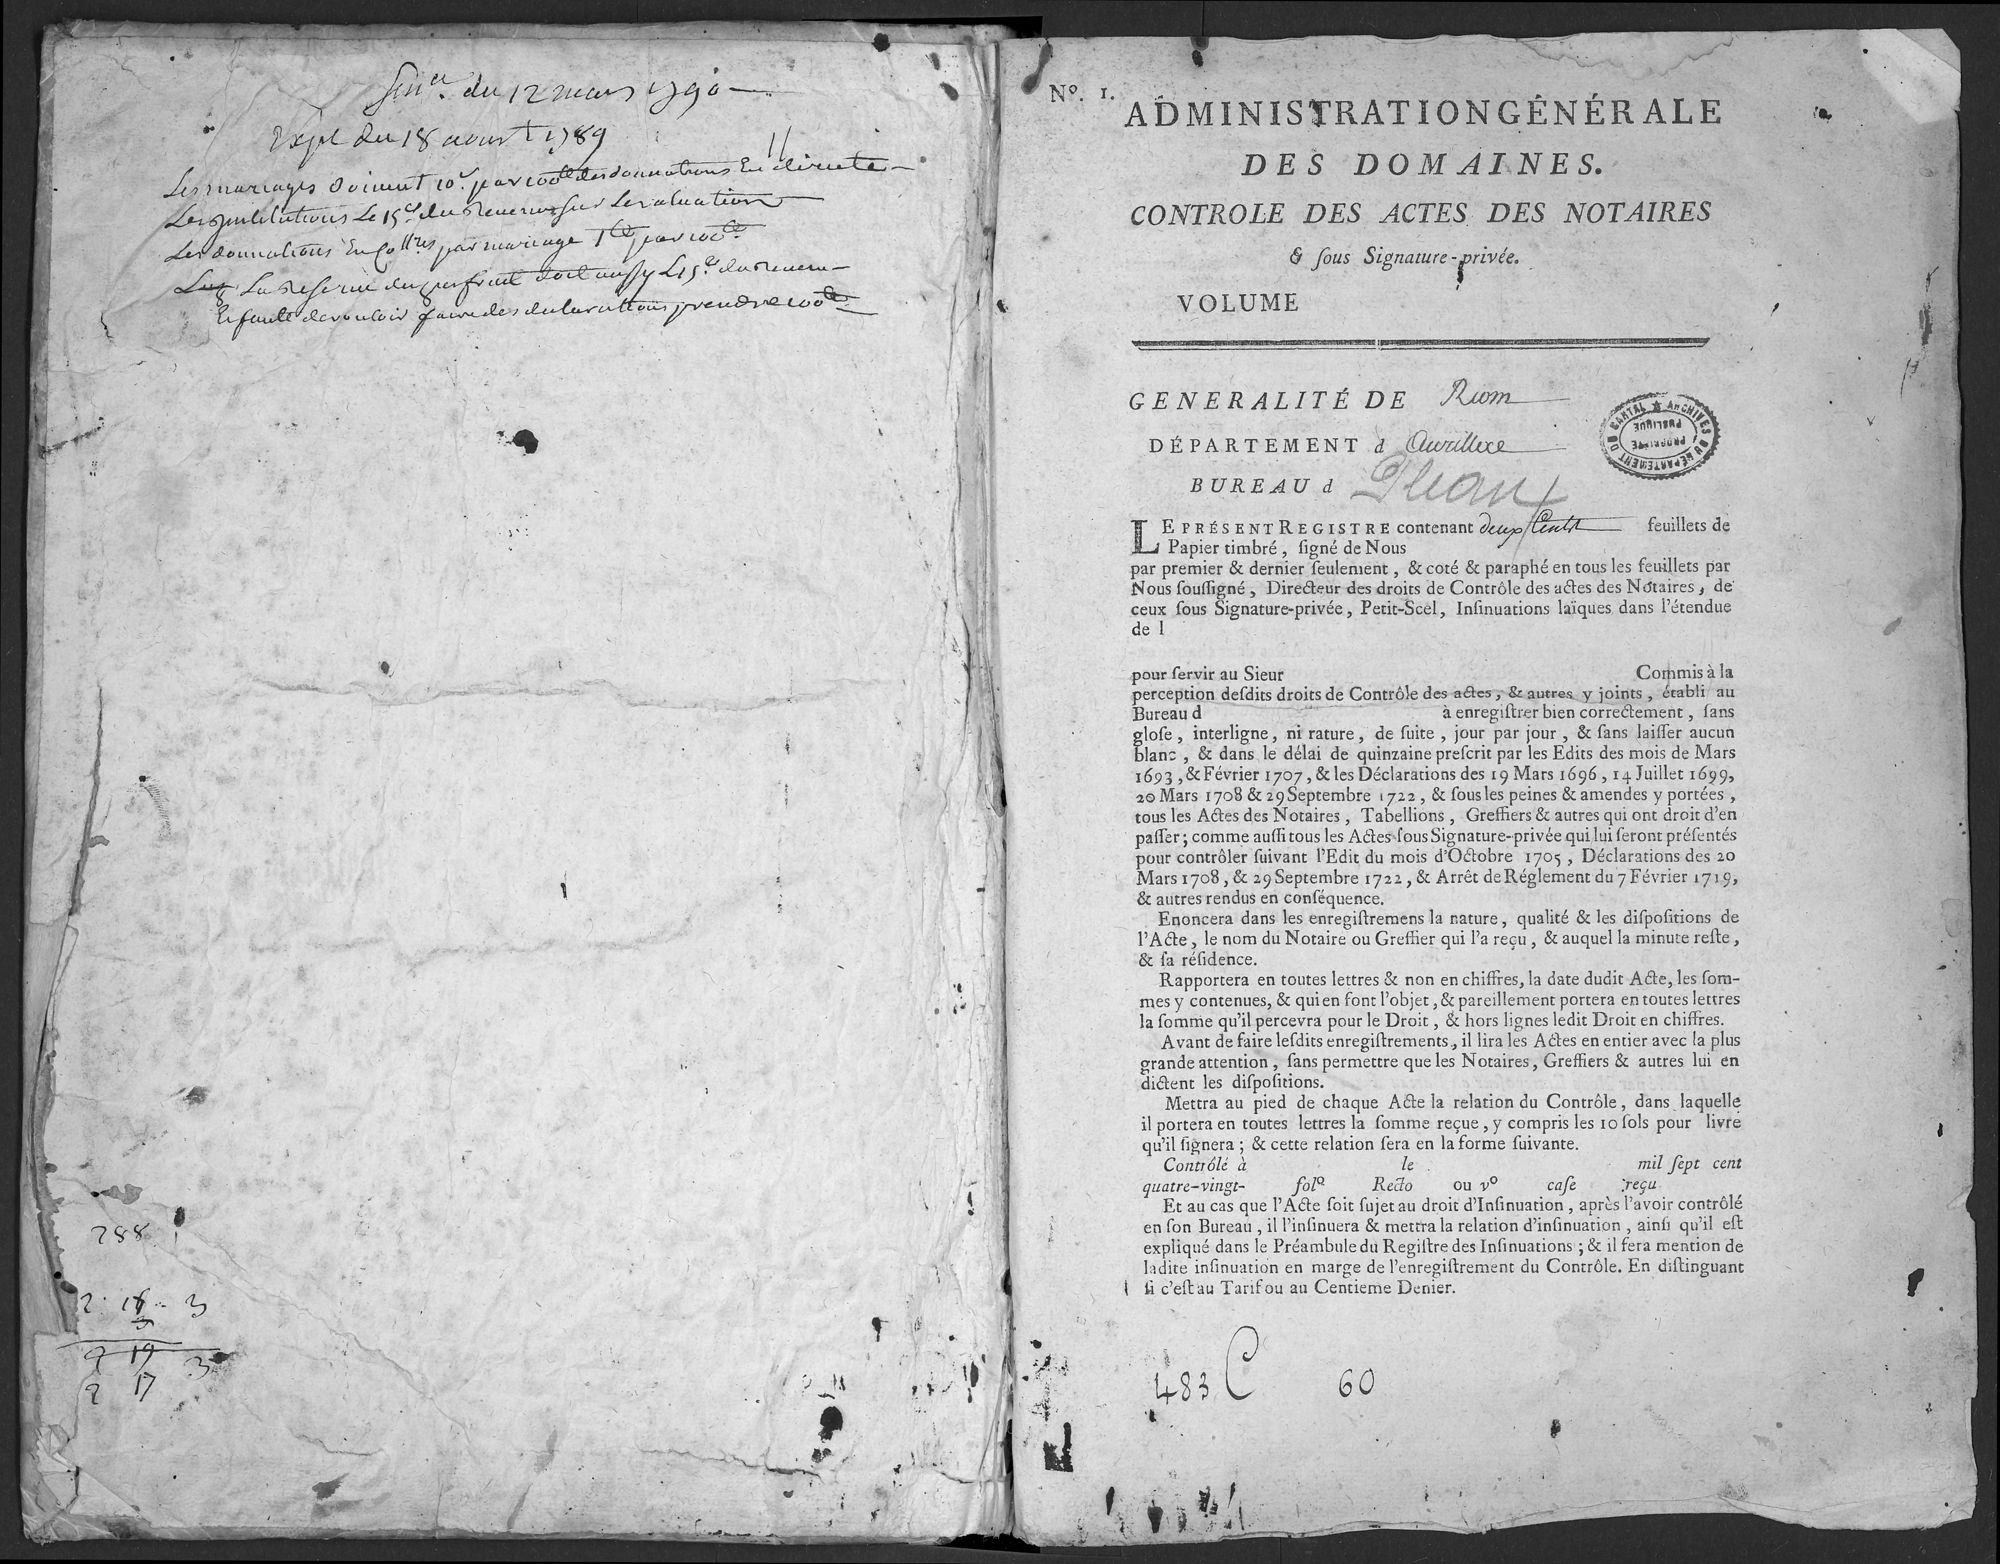 du 12 mars 1790
du 18 aoust 1789
Les mariages doivent 10 par 100 des donnations En directe
Les Le 15 du Revenu sur Levaluation
Les donnations En par mariage par 100
La Reserve dusufruit doit aussy du Revenu
faire des declarations prendre 100
288
2 16 3
9 19 3
2 17
Nº. 1.
ADMINISTRATION GÉNÉRALE
DES DOMAINES.
CONTROLE DES ACTES DES NOTAIRES
& ſous Signature-privée.
VOLUME
GENERALITÉ DE Riom
DÉPARTEMENT d Aurillac
BUREAU d Pleaux
LE PRÉSENT REGISTRE contenant deux Cents feuillets de
Papier timbré, ſigné de Nous
par premier & dernier ſeulement, & coté & paraphé en tous les feuillets par
Nous ſouſſigné, Directeur des droits de Contrôle des actes des Notaires, de
ceux ſous Signature-privée, Petit-Scel, Inſinuations laïques dans l'étendue
de l
pour ſervir au Sieur Commis à la
perception deſdits droits de Contrôle des actes, & autres y joints, établi au
Bureau d à enregiſtrer bien correctement, ſans
gloſe, interligne, ni rature, de ſuite, jour par jour, & ſans laiſſer aucun
blanc, & dans le délai de quinzaine preſcrit par les Edits des mois de Mars
1693, & Février 1707, & les Déclarations des 19 Mars 1696, 14 Juillet 1699,
20 Mars 1708 & 29 Septembre 1722, & ſous les peines & amendes y portées,
tous les Actes des Notaires, Tabellions, Greffiers & autres qui ont droit d'en
paſſer; comme auſſi tous les Actes ſous Signature-privée qui lui ſeront préſentés
pour contrôler ſuivant l'Edit du mois d'Octobre 1705, Déclarations des 20
Mars 1708, & 29 Septembre 1722, & Arrêt de Réglement du 7 Février 1719,
& autres rendus en conſéquence.
Enoncera dans les enregiſtremens la nature, qualité & les diſpoſitions de
l'Acte, le nom du Notaire ou Greffier qui l'a reçu, & auquel la minute reſte,
& ſa réſidence.
Rapportera en toutes lettres & non en chiffres, la date dudit Acte, les ſom-
mes y contenues, & qui en font l'objet, & pareillement portera en toutes lettres
la ſomme qu'il percevra pour le Droit, & hors lignes ledit Droit en chiffres.
Avant de faire leſdits enregiſtrements, il lira les Actes en entier avec la plus
grande attention, ſans permettre que les Notaires, Greffiers & autres lui en
dictent les diſpoſitions.
Mettra au pied de chaque Acte la relation du Contrôle, dans laquelle
il portera en toutes lettres la ſomme reçue, y compris les 10 ſols pour livre
qu'il ſignera; & cette relation ſera en la forme ſuivante.
Contrôlé à le mil ſept cent
quatre-vingt- folº Recto ou vº caſe reçu
Et au cas que l'Acte ſoit ſujet au droit d'Inſinuation, après l'avoir contrôlé
en ſon Bureau, il l'inſinuera & mettra la relation d'inſinuation, ainſi qu'il eſt
expliqué dans le Préambule du Regiſtre des Inſinuations; & il fera mention de
ladite inſinuation en marge de l'enregiſtrement du Contrôle. En diſtinguant
ſi c'eſt au Tarif ou au Centieme Denier.
483 C 60
ARCHIVES DU DÉPARTEMENT DU CANTAL
PROPRIÉTÉ
PUBLIQUE